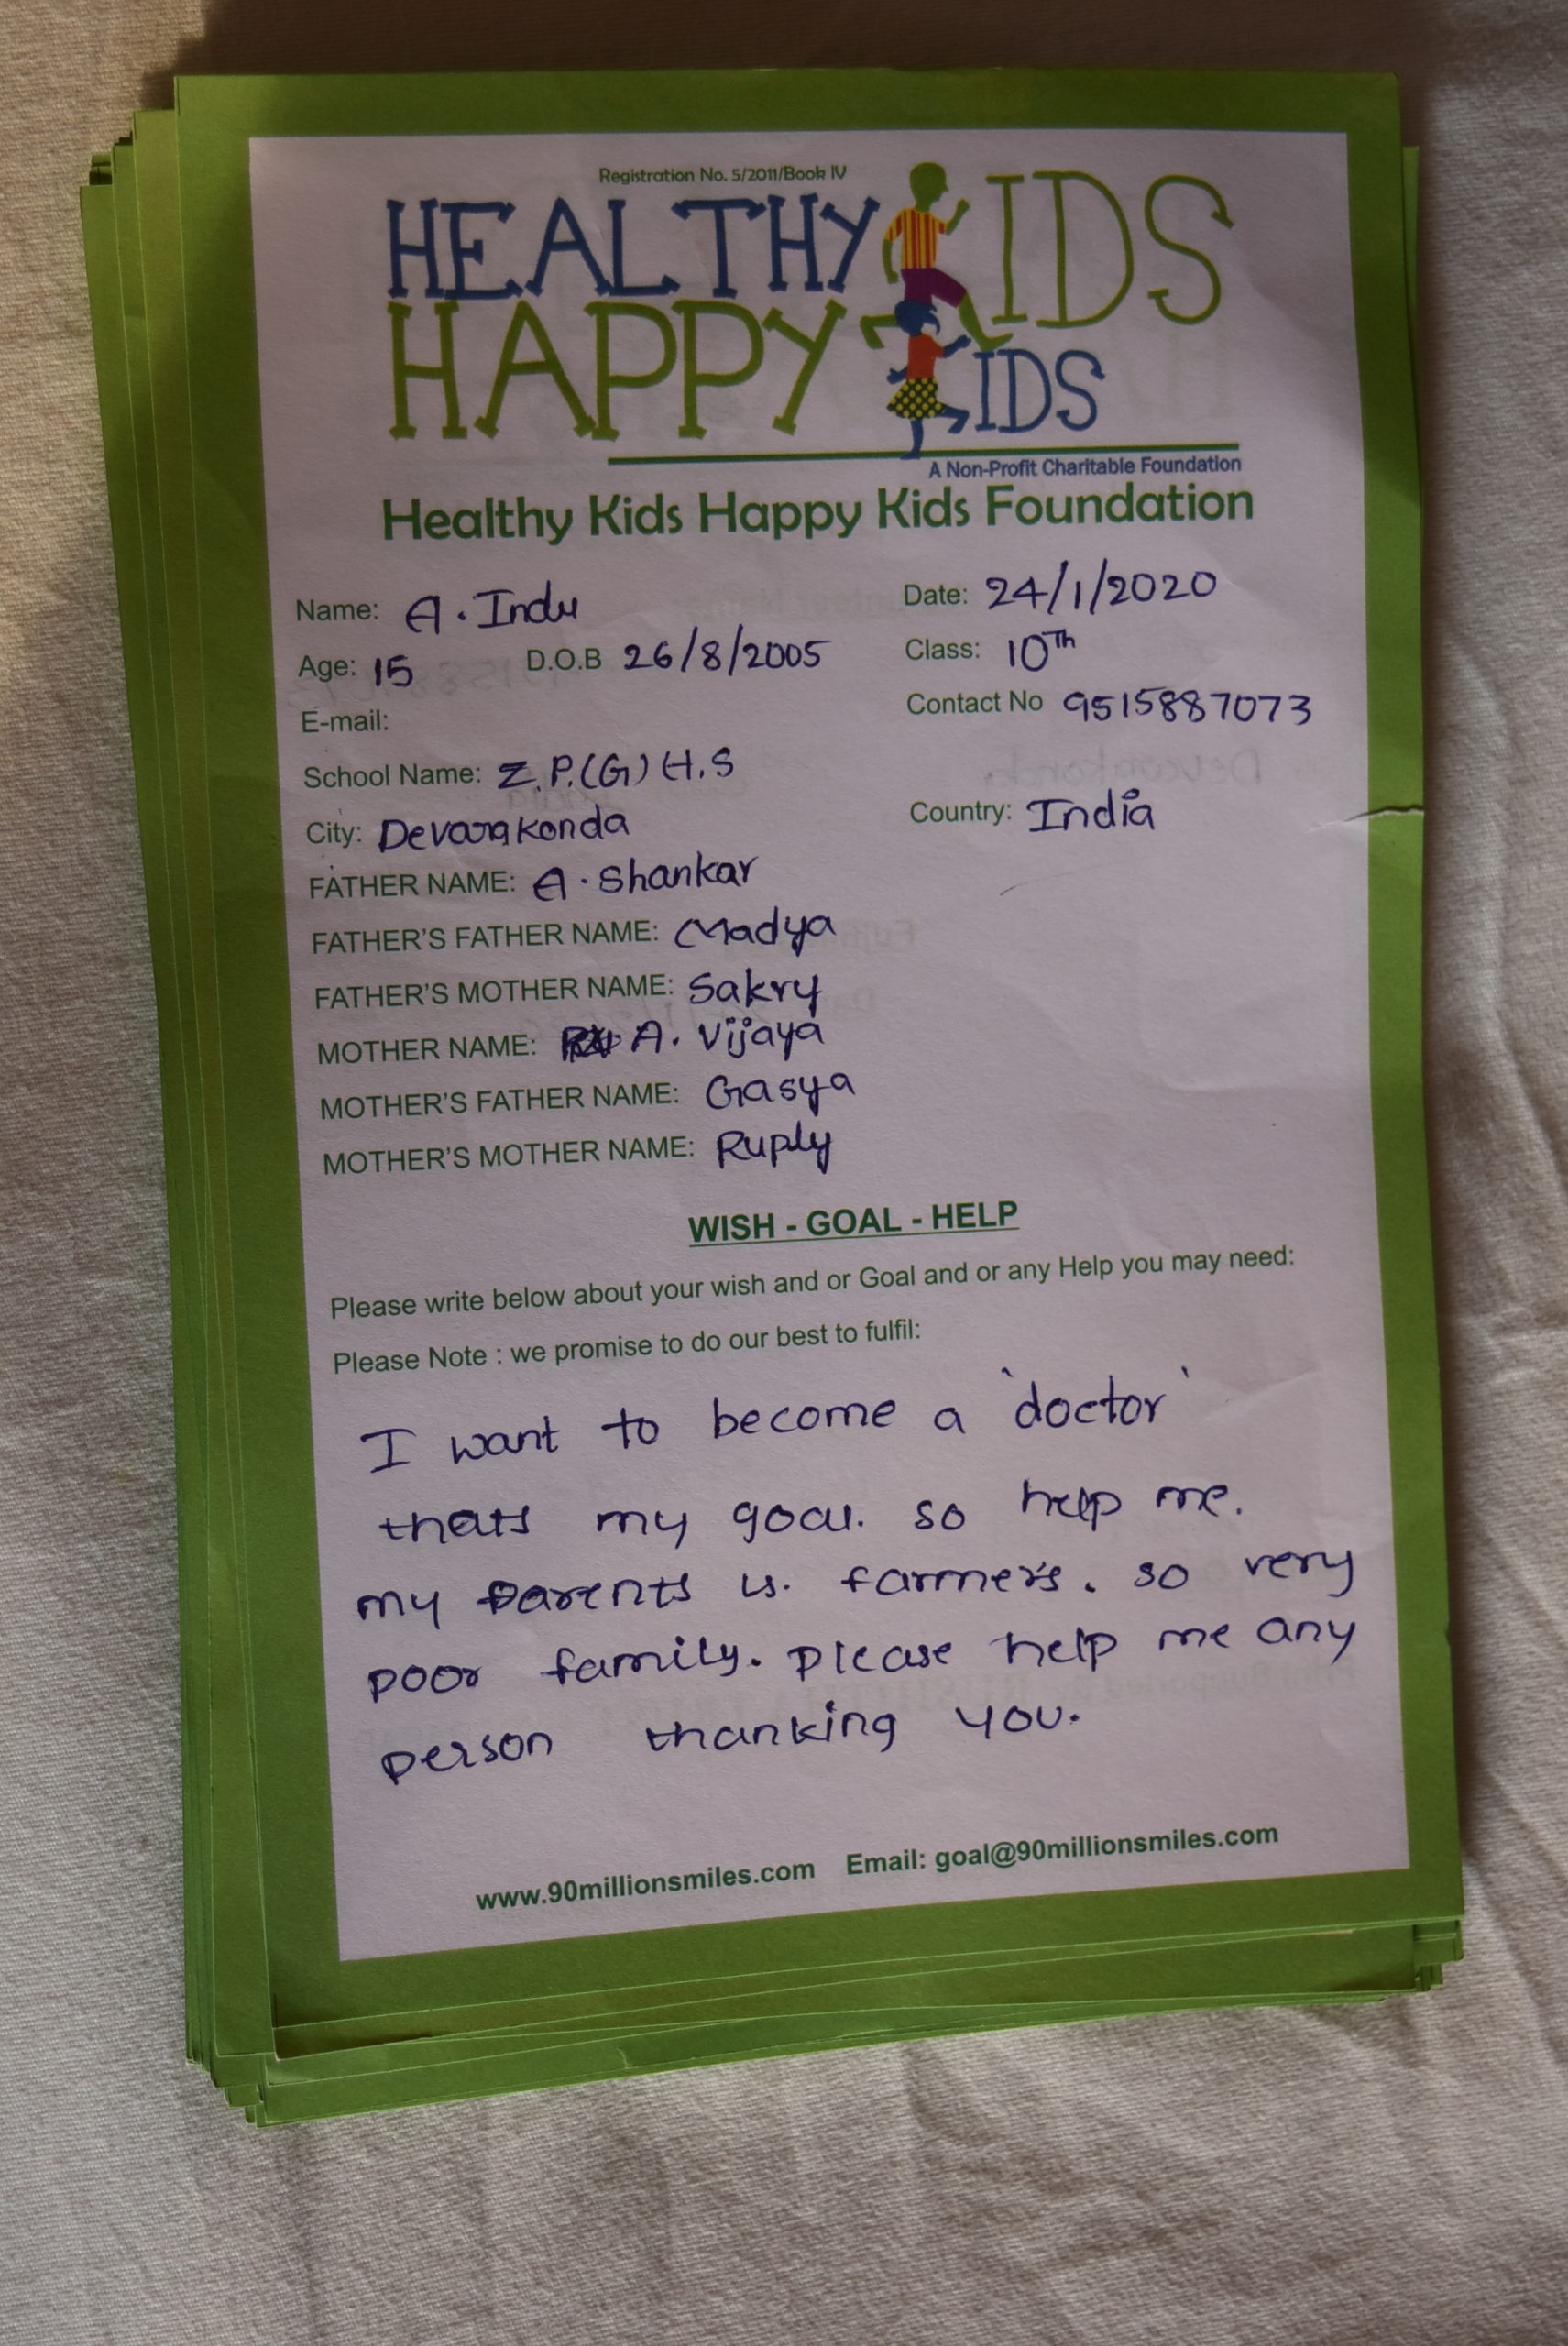 Registration No. 5/2011/Book IV
HEALTHY KIDS
HAPPY KIDS
A Non-Profit Charitable Foundation
Healthy Kids Happy Kids Foundation
Name: A. Indu Date: 24/1/2020
Age: 15 D.O.B 26/8/2005 Class: 10Th
E-mail: Contact No 9515887073
School Name: Z.P.(G) H.S
City: Devarakonda Country: India
FATHER NAME: A. Shankar
FATHER'S FATHER NAME: Madya
FATHER'S MOTHER NAME: Sakry
MOTHER NAME: A. Vijaya
MOTHER'S FATHER NAME: Gasya
MOTHER'S MOTHER NAME: Ruply
WISH - GOAL - HELP
Please write below about your wish and or Goal and or any Help you may need:
Please Note : we promise to do our best to fulfil:
I want to become a 'doctor'
thats my goal. so help me.
my parents is. farmers. so very
poor family. please help me any
person thanking you.
www.90millionsmiles.com Email: goal@90millionsmiles.com